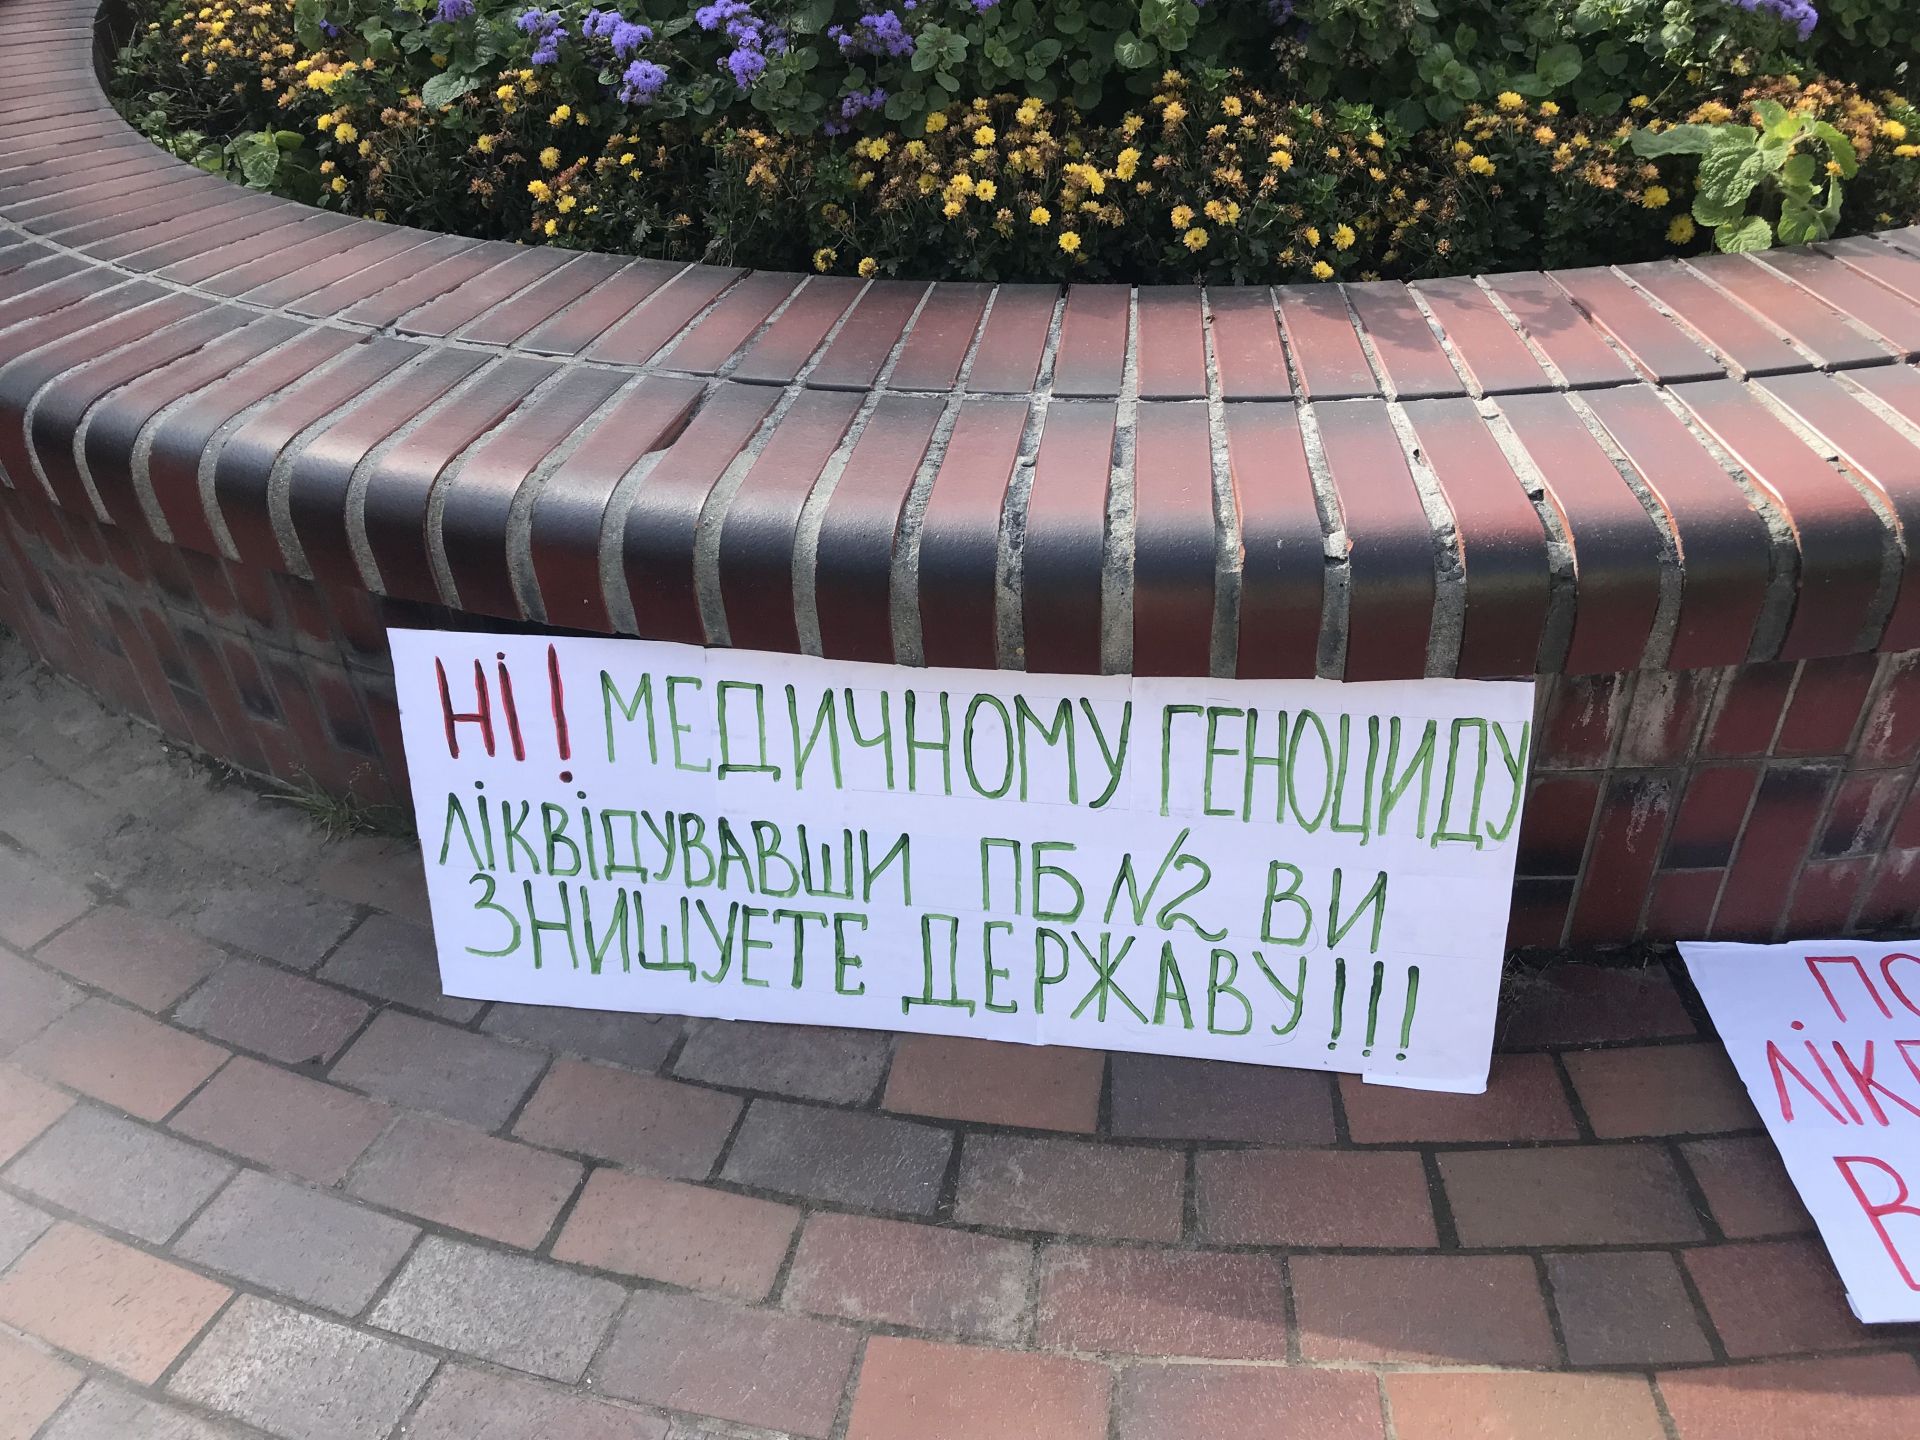 НІ! МЕДИЧНОМУ ГЕНОЦИДУ
ЛІКВІДУВАВШИ ПБ №2 ВИ
ЗНИЩУЕТЕ ДЕРЖАВУ!!!